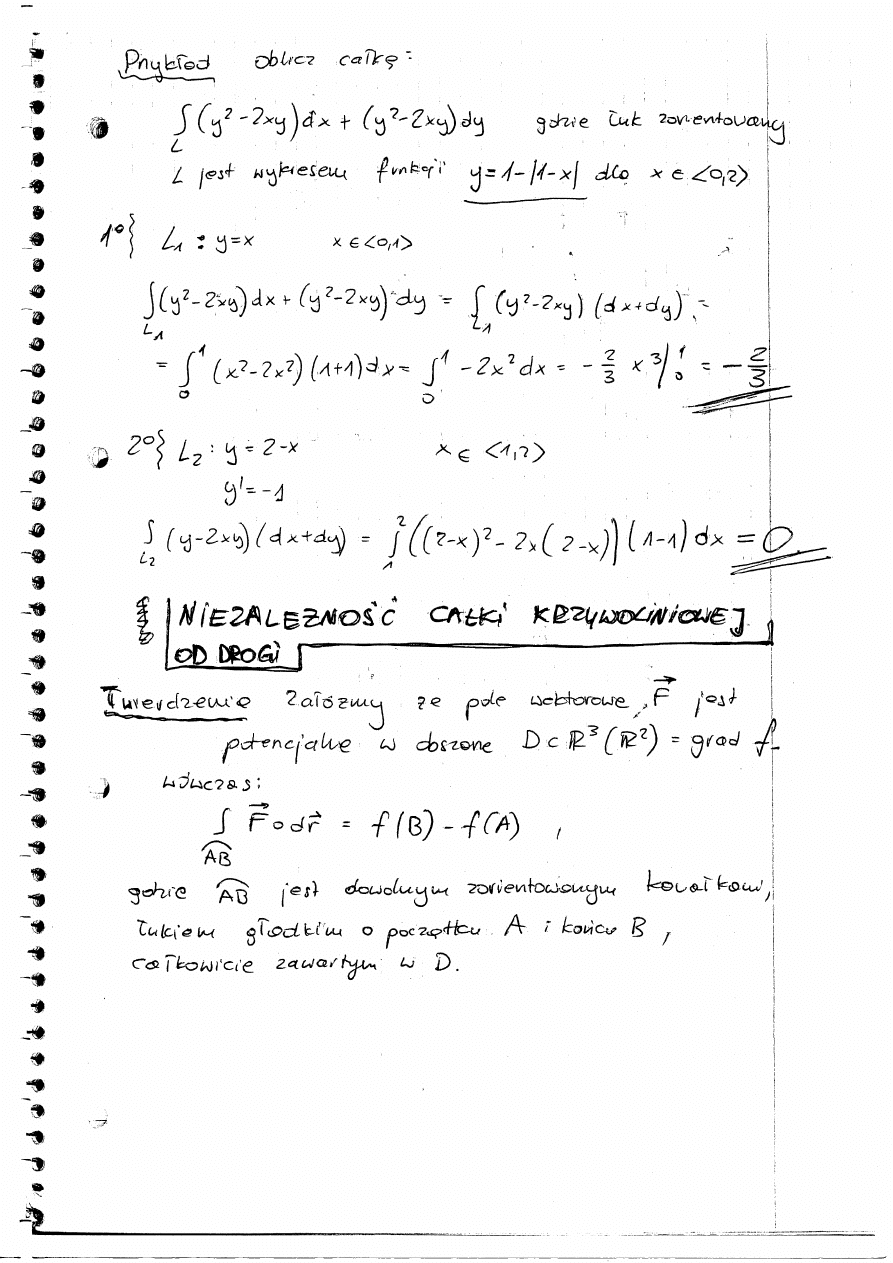 Przykład oblicz całkę:
∫_L (y²-2xy)dx + (y²-2xy)dy gdzie łuk zorientowany
L jest wykresem funkcji y=1-|1-x| dla x ∈ <0,2>
1°} L₁ : y=x x ∈ <0,1>
∫_L₁ (y²-2xy)dx + (y²-2xy) dy = ∫_L₁ (y²-2xy) (dx+dy) =
= ∫₀¹ (x²-2x²)(1+1)dx = ∫₀¹ -2x² dx = -2/3 x³|₀¹ = -2/3
2°} L₂ : y = 2-x x ∈ <1,2>
y' = -1
∫_L₂ (y-2xy)(dx+dy) = ∫₁² ((2-x)² - 2x(2-x)) (1-1) dx = 0
NIEZALEŻNOŚĆ CAŁKI KRZYWOLINIOWEJ
OD DROGI
Twierdzenie Załóżmy że pole wektorowe F⃗ jest
potencjalne w obszarze D ⊂ ℝ³ (ℝ²) = grad f
wówczas:
∫_AB F⃗ ∘ dr⃗ = f(B) - f(A) ,
gdzie AB jest dowolnym zorientowanym kawałkami,
łukiem gładkim o początku A i końcu B ,
całkowicie zawartym w D.